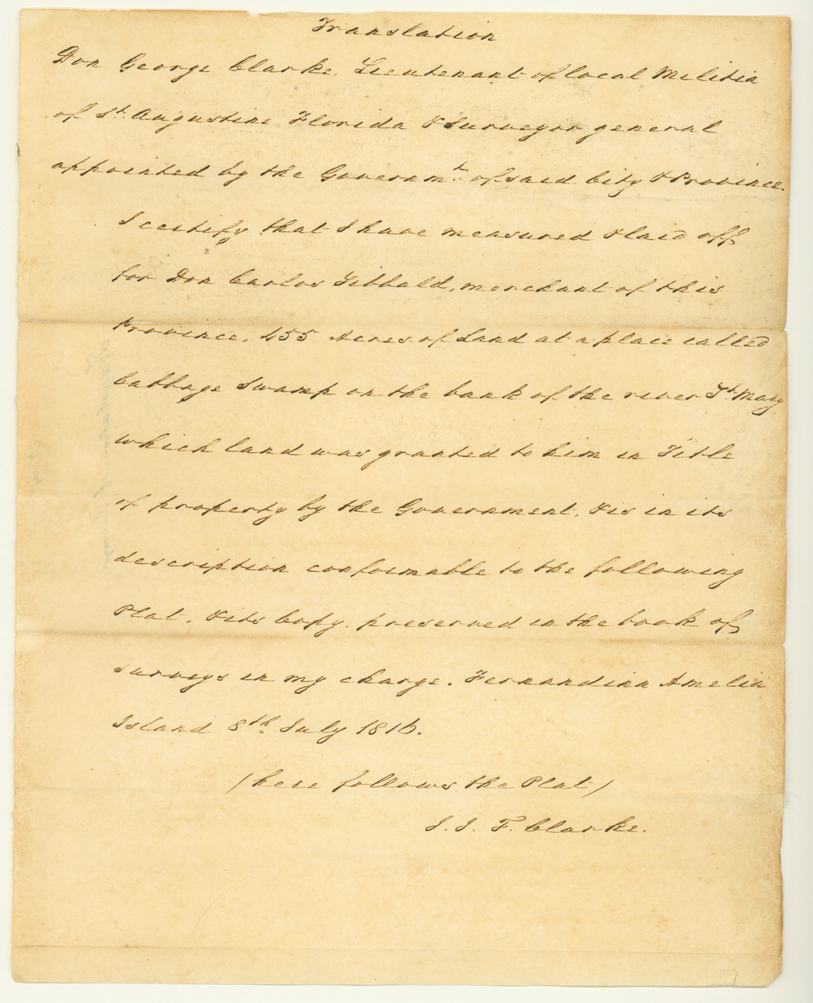 Translation
Don George Clarke, Lieutenant of local Militia
of St. Augustine Florida & Surveyor general
appointed by the Governmt. of said City & Province.
I certify that I have measured & laid off
for Don Carlos Sibbald, merchant of this
Province, 455 Acres of Land at a place called
Cabbage Swamp on the bank of the river St. Mary
which land was granted to him in Title
of property by the Government, & is in its
description conformable to the following
Plat, & its Copy preserved in the book of
surveys in my charge. Fernandina Amelia
Island 8th. July 1816.
(here follows the Plat)
J. J. F. Clarke.